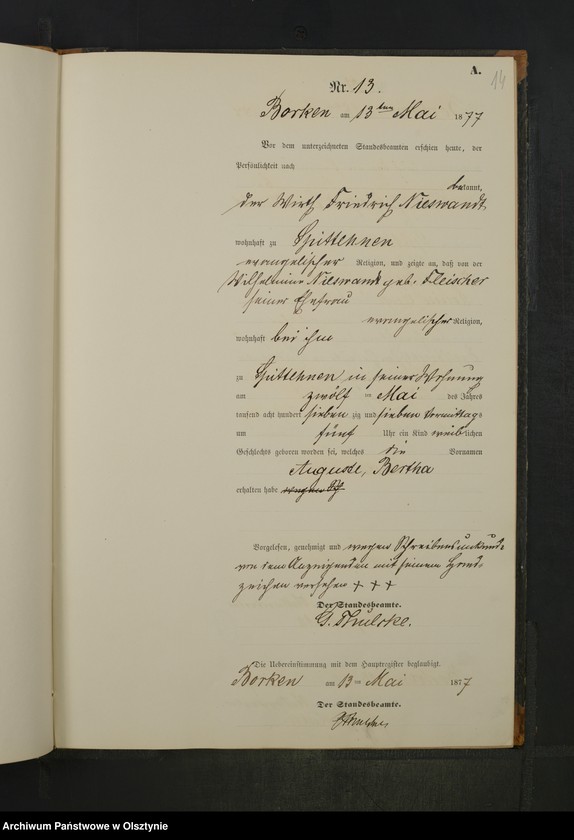 A.
14
Nr. 13.
Borken am 13ten Mai 1877
Vor dem unterzeichneten Standesbeamten erschien heute, der
Persönlichkeit nach
bekannt,
der Wirth Friedrich Nieswandt
wohnhaft zu Spittehnen
evangelischer Religion, und zeigte an, daß von der
Wilhelmine Nieswandt geb. Fleischer
seiner Ehefrau
evangelischer Religion,
wohnhaft bei ihm
zu Spittehnen in seiner Wohnung
am zwölf ten Mai des Jahres
tausend acht hundert sieben zig und sieben Vormittags
um fünf Uhr ein Kind weiblichen
Geschlechts geboren worden sei, welches die Vornamen
Auguste, Bertha
erhalten habe
Vorgelesen, genehmigt und wegen Schreibensunkunde
von dem Anzeigenden mit seinem Hand-
zeichen versehen + + +
Der Standesbeamte.
G. Thulcke.
Die Uebereinstimmung mit dem Hauptregister beglaubigt.
Borken am 13ten Mai 1877
Der Standesbeamte.
Archiwum Państwowe w Olsztynie